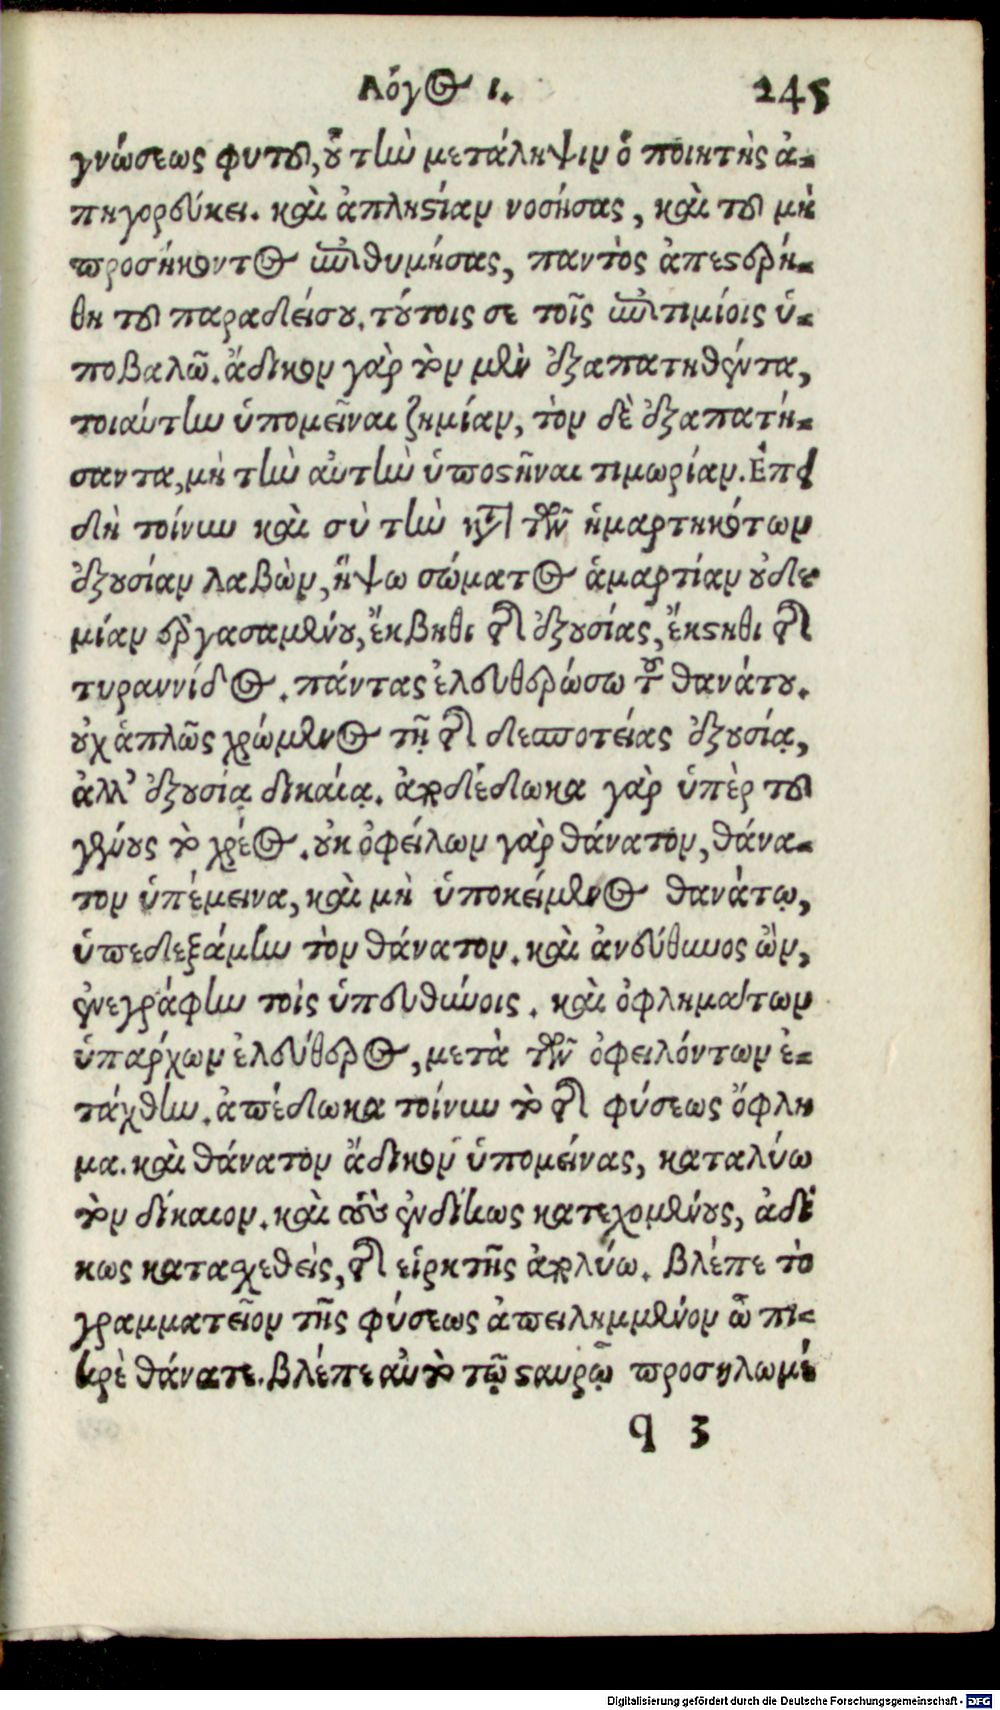 Λόγος ι. 245
γνώσεως φυτοῦ, οὗ τὴν μετάληψιν ὁ ποιητὴς ἀ-
πηγορεύκει. καὶ ἀπληστίαν νοσήσας, καὶ τοῦ μὴ
προσήκοντος ἐπιθυμήσας, παντὸς ἀπεστερή-
θη τοῦ παραδείσου. τούτοις σε τοῖς ἐπιτιμίοις ὑ-
ποβαλῶ. ἄδικον γὰρ τὸν μὲν ἐξαπατηθέντα,
τοιαύτην ὑπομεῖναι ζημίαν, τὸν δὲ ἐξαπατή-
σαντα, μὴ τὴν αὐτὴν ὑποστῆναι τιμωρίαν. Ἐπει
δὴ τοίνυν καὶ σὺ τὴν κατὰ τῶν ἡμαρτηκότων
ἐξουσίαν λαβὼν, ἥψω σώματος ἁμαρτίαν οὐδε
μίαν ἐργασαμένου, ἔκβηθι τῆς ἐξουσίας, ἔκστηθι τῆς
τυραννίδος. πάντας ἐλευθερώσω τοῦ θανάτου.
οὐχ ἁπλῶς χρώμενος τῇ τῆς δεσποτείας ἐξουσίᾳ,
ἀλλ’ ἐξουσίᾳ δικαίᾳ. ἀποδέδωκα γὰρ ὑπὲρ τοῦ
γένους τὸ χρέος. οὐκ ὀφείλων γὰρ θάνατον, θάνα-
τον ὑπέμεινα, καὶ μὴ ὑποκείμενος θανάτῳ,
ὑπεδεξάμην τὸν θάνατον. καὶ ἀνεύθυνος ὢν,
ἐνεγράφην τοῖς ὑπευθύνοις. καὶ ὀφλημάτων
ὑπάρχων ἐλεύθερος, μετὰ τῶν ὀφειλόντων ἐ-
τάχθην. ἀπέδωκα τοίνυν τὸ τῆς φύσεως ὄφλη
μα. καὶ θάνατον ἄδικον ὑπομείνας, καταλύω
τὸν δίκαιον. καὶ τοὺς ἐνδίκως κατεχομένους, ἀδί
κως κατασχεθεὶς, τῆς εἱρκτῆς ἀπολύω. βλέπε τὸ
γραμματεῖον τῆς φύσεως ἀπειλημμένον ὦ πι-
κρὲ θάνατε. βλέπε αὐτὸ τῷ σταυρῷ προσηλωμέ
q 3
Digitalisierung gefördert durch die Deutsche Forschungsgemeinschaft - DFG